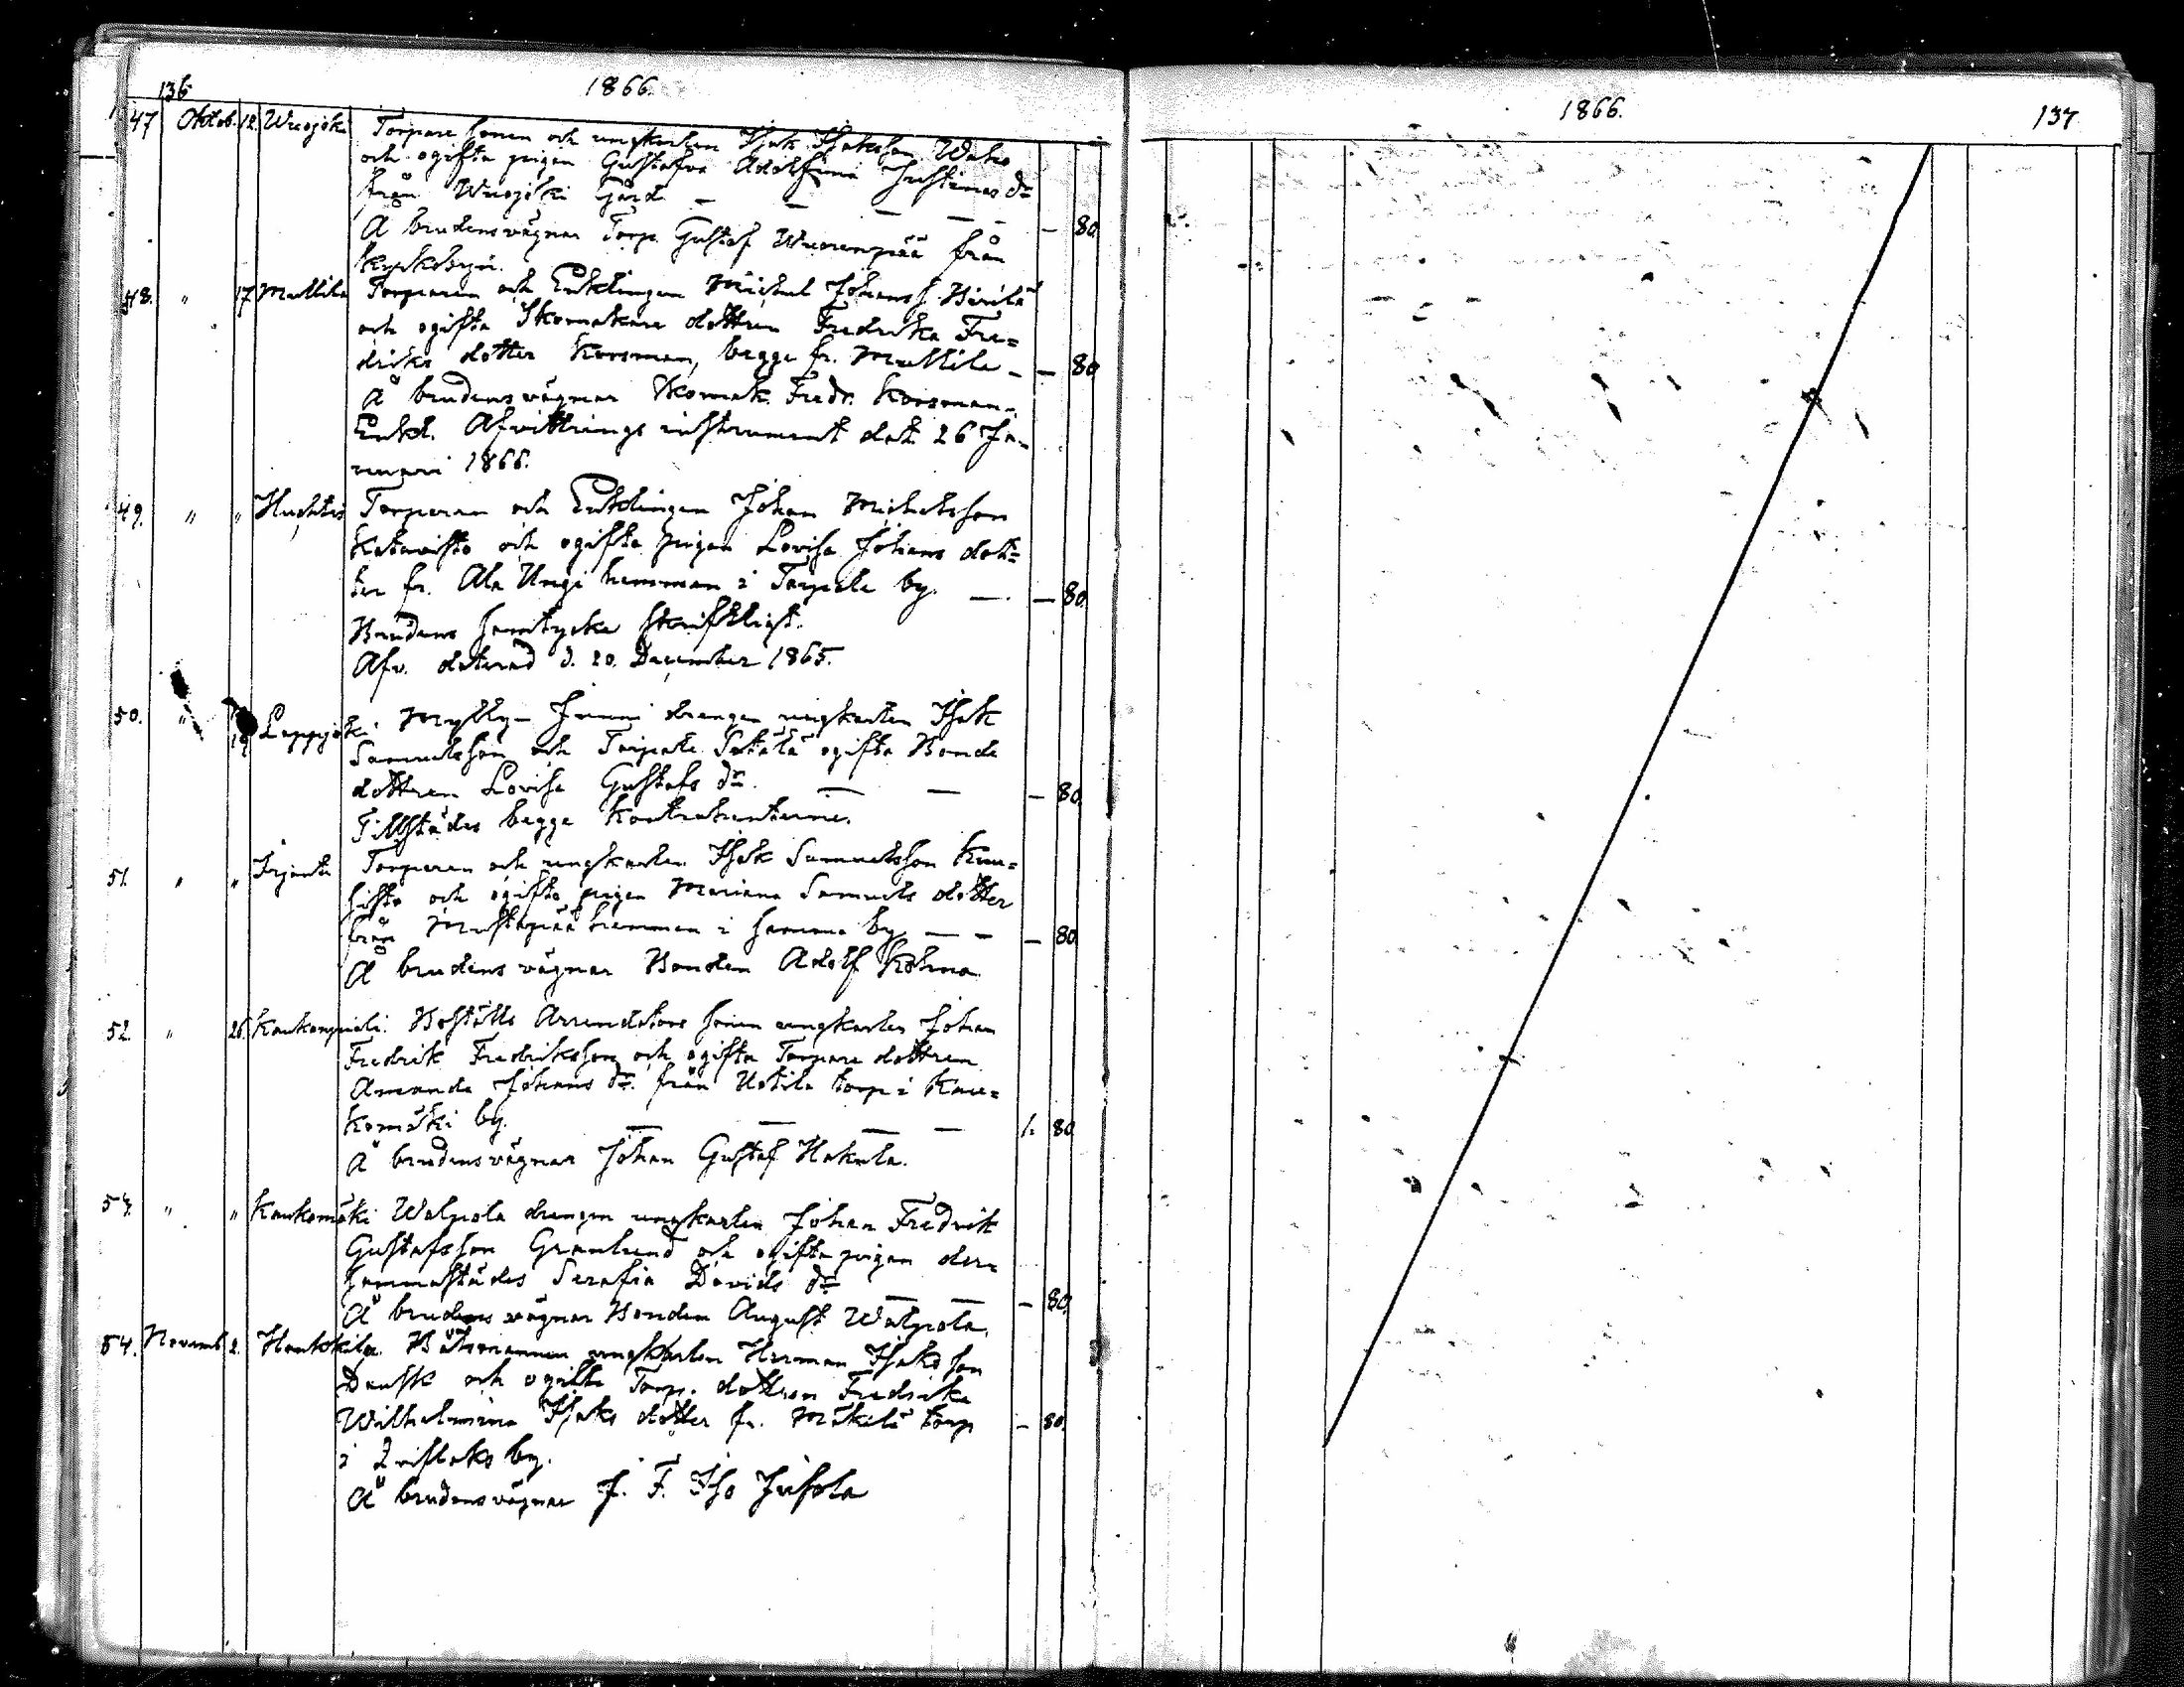 136
1866.
47 Oktob. 12. Wuojoki Torpare sonen och ungkarlen Isak Isaksson Waho
och ogifta pigan Gustafva Adolfina Justinas dr
från Wuojoki Gård — — — — — — 80.
Å brudens vägnar Torp. Gustaf Wuorenpää från
Kyrkobyn.
48. " 17 Mullila Torparen och Enklingen Michel Johanss. Heirilä
och ogifta Skomakare dottren Fredrika Fre=
driks dotter Korsman, begge fr. Mullila — — 80
Å brudens vägnar Skomak. Fredr. Korsman.
Enkl. Afvittrings instrument dat. 26 Ja-
nuari 1866.
49. " " Huhtis Torparen och Enklingen Johan Michelsson
Katavisto och ogifta pigan Lovisa Johans dot=
ter fr. Ala Ungi hemman i Tarpila by. — — 80.
Brudens samtycke skriftligt.
Afv. daterad d. 20. December 1865.
50. " 19 Lappjoki. Mylly- Jussi drengen ungkarlen Isak
Samuelsson och Taipale Satälä ogifta Bonde
dottren Lovisa Gustafs dr. — — — 80.
Tillstädes begge Kontrahenterne.
51. " " Irjanta Torparen och ungkarlen Isak Samuelsson Kuu=
sisto och ogifta pigan Mariana Samuels dotter
från Mustapää hemman i samma by — — — 80.
Å brudens vägnar Bonden Adolf Kohma
52. " 26. Kaukompieli. Boställs Arrendators sonen ungkarlen Johan
Fredrik Fredriksson och ogifta Torpare dottren
Amanda Johans dr. från Uotila torp i Kau=
komäki by. — — — — 1. 80
Å brudens vägnar Johan Gustaf Hakula.
53. " " Kaukomäki Walpola drengen ungkarlen Johan Fredrik
Gustafsson Grönlund och ogifta pigan der=
sammastädes Serafia Davids dr — — — 80.
Å brudens vägnar Bonden August Walpola.
54. Novemb. 2. Hankkila. Båtsmannen ungkarlen Herman Isaks son
Dansk och ogifta Torp. dottren Fredrika
Wilhelmina Isaks dotter fr. Mäkilä torp — 80.
i Irislaks by.
Å brudens vägnar J. F. Iso Jusola
1866.
137